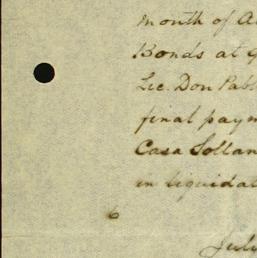 month of A
Bonds at 9
Lic. Don Pabl
final paym
Casa Sollan
in liquidat
6
July